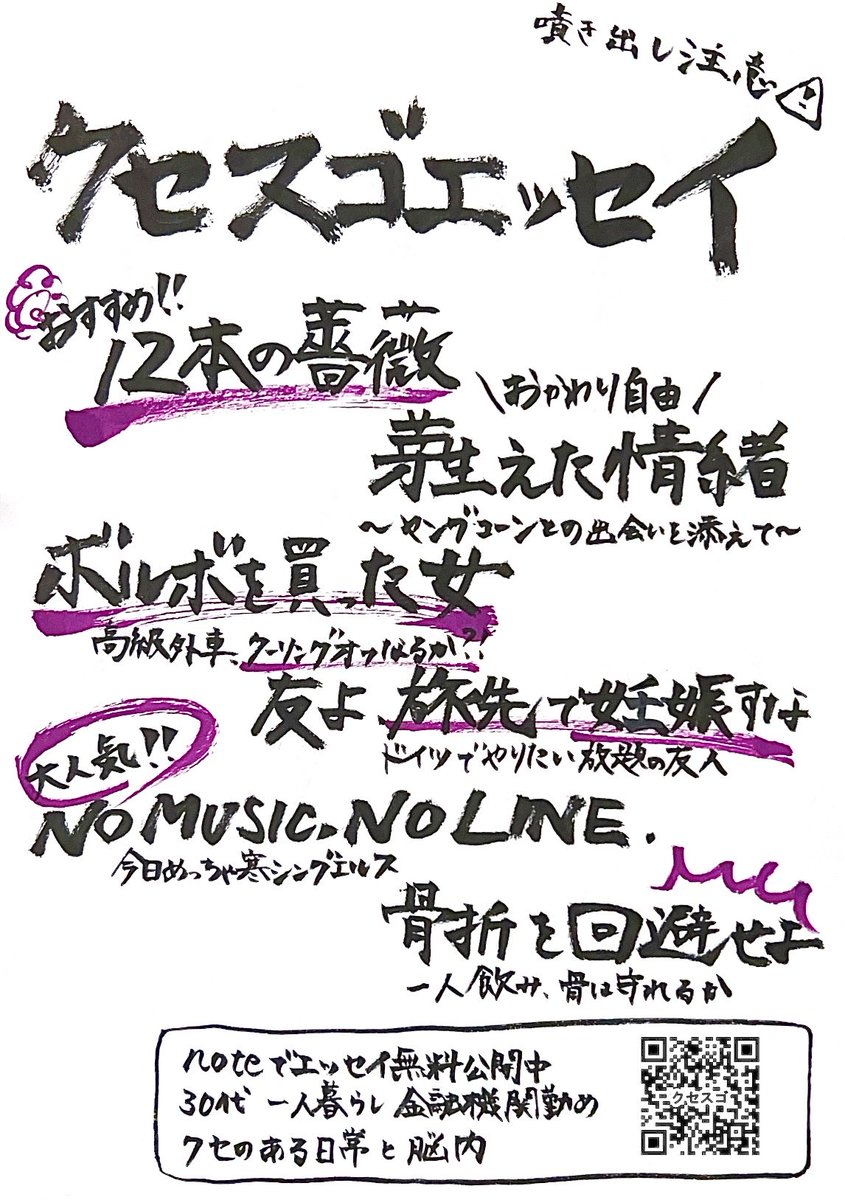 噴き出し注意⚠
クセスゴエッセイ
おすすめ!!
12本の薔薇
\おかわり自由/
芽生えた情緒
〜ヤングコーンとの出会いを添えて〜
ボルボを買った女
高級外車、クーリングオフなるか?!
友よ、旅先で妊娠すな
ドイツでやりたい放題の友人
大人気!!
NO MUSIC. NO LINE.
今日めっちゃ寒シングエルス
骨折を回避せよ
一人飲み、骨は守れるか
noteでエッセイ無料公開中
30代 一人暮らし 金融機関勤め
クセのある日常と脳内
クセスゴ